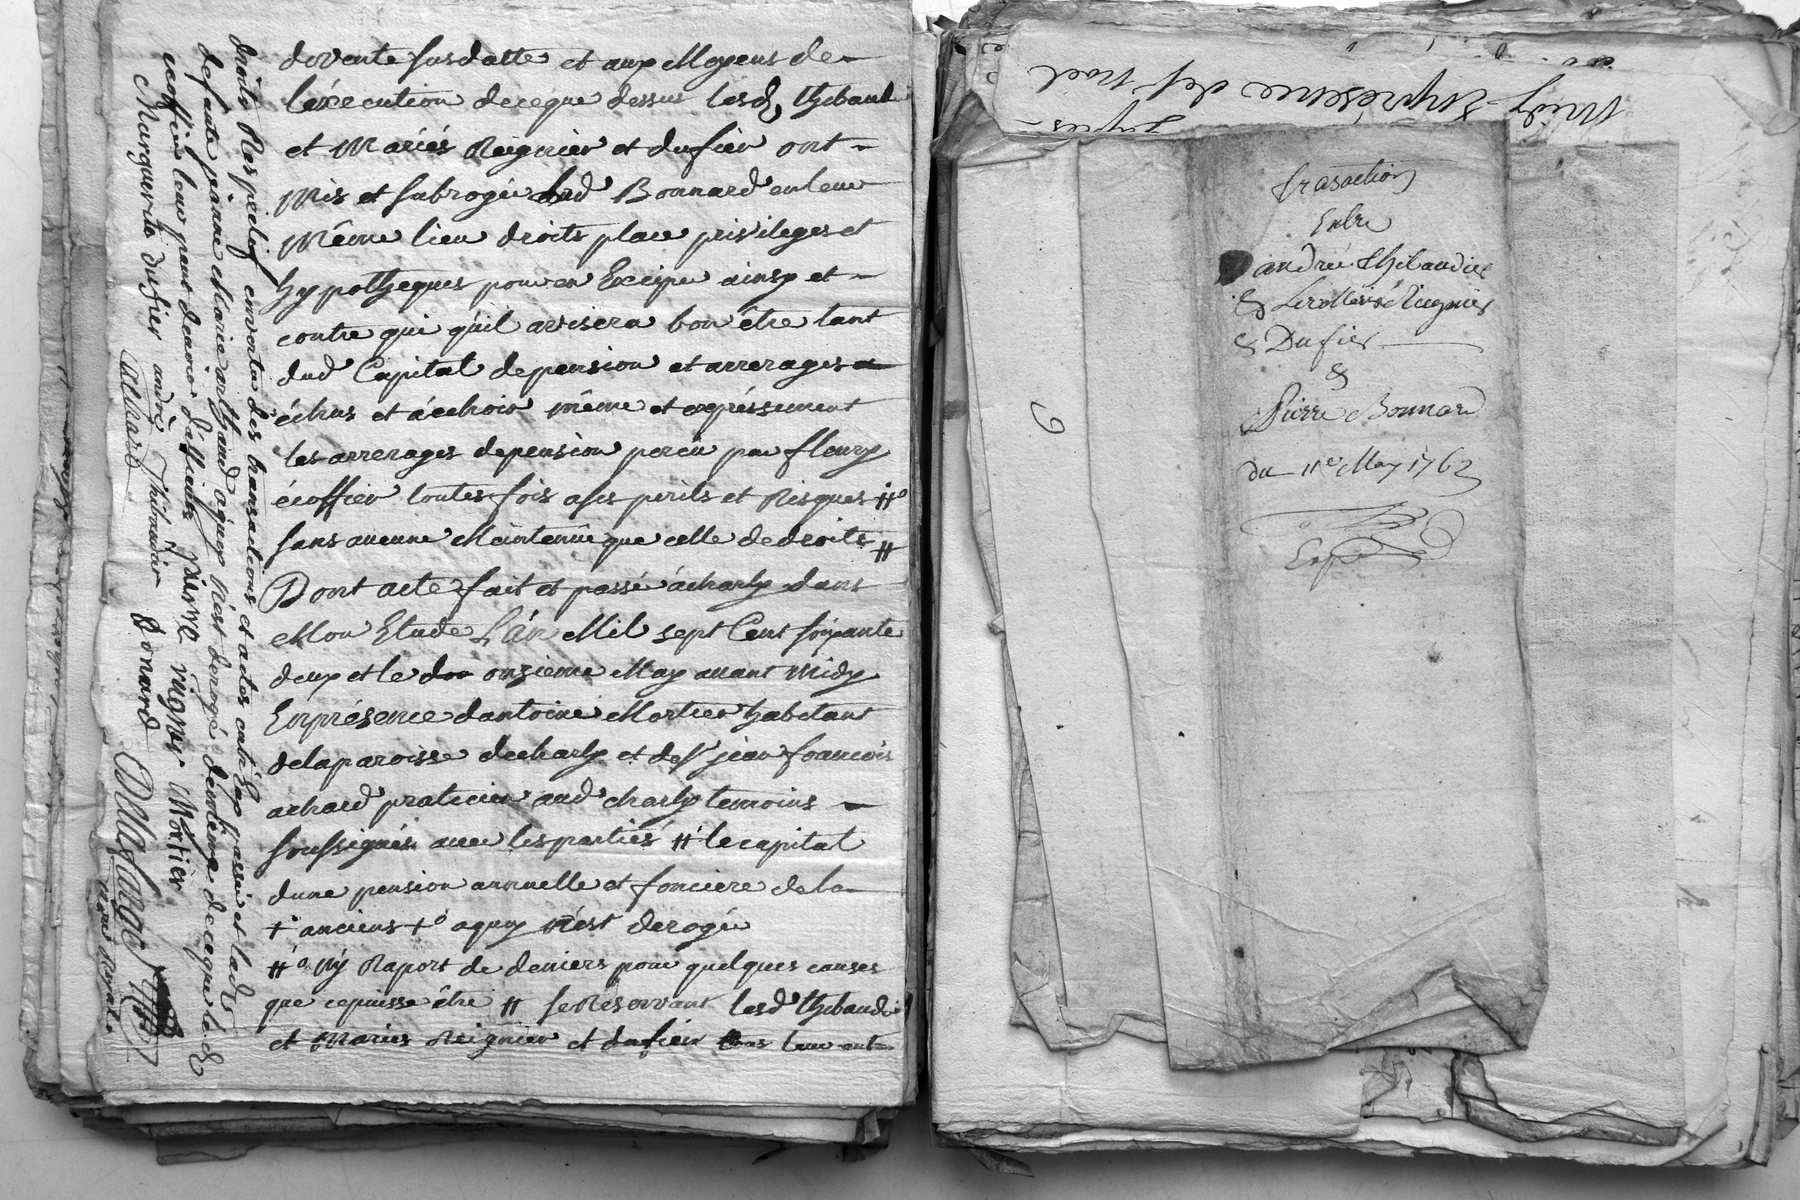 devente susdatte et aux Moyens de
l'éxécution deceque dessus lesd. thibaud
et Mariés Reignier et dufier ont
Mis et subrogé led Bonnard enleur
Même lieu droits place privileges et
hypotheques pour en Exciper ainsy et
contre qui quil avisera bon être tant
dud Capital depension et arrerages
échus et áechoir même et expréssement
les arrerages depension percû par fleury
écoffier toutes fois ases perils et Risques #o
sans aucune Maintenüe que celle dedroits #
Dont acte fait et passé ácharly dans
Mon Etude L'án Mil sept Cent soixante
deux et le onzieme May avant Midy
Enprésence dantoine Mortier habitant
delaparoisse decharly et des.r jean francois
achard praticien aud charly temoins
soussignés avec lesparties # lecapital
dune pension annuelle et fonciere dela
+ anciens +o aquoy n'est derogé
#o Ny Raport de deniers pour quelques causes
que cepuisse être # se Reservant lesd thibaudier
et Mariés Reignier et dufier leur ent
droits Respectifs envertu des transactions et actes entr'Eux passés et lad
defunte jeanne Marie aquoy n'est derogé demême deceque led
écoffier leur peut devoir
Marguerite dufier andré Thibaudier bonard
pierre rignier Mortier
achard
Delafarge
Nore Royal
Midy Enprésence des.r noel
trasaction
Entre
andrée thibaudier
& Les Mariés Riegnier
& Dufier
&
Pierre Bonnard
du 11e May 1762
Exp
9